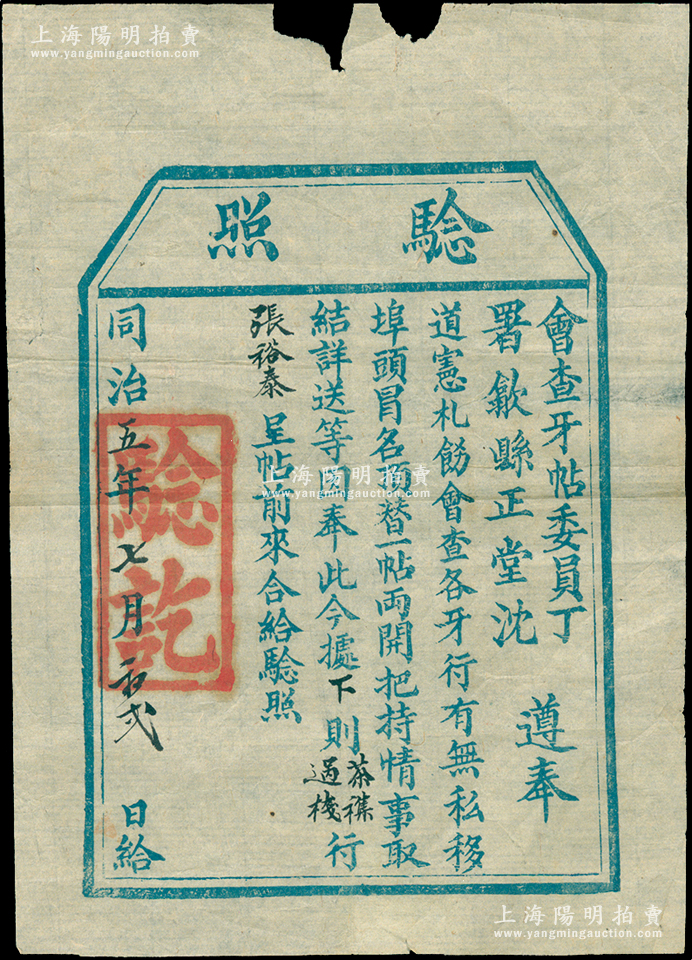 上海陽明拍賣
www.yangmingauction.com
驗照
會查牙帖委員丁
署歙縣正堂沈
遵奉
道憲札飭會查各牙行有無私移
埠頭冒名頂替一帖両開把持情事取
結詳送等因奉此今據下則茶襍過棧行
張裕泰呈帖前來合給驗照
同治五年七月初弍日給
驗訖
上海陽明拍賣
www.yangmingauction.com
上海陽明拍賣
www.yangmingauction.com